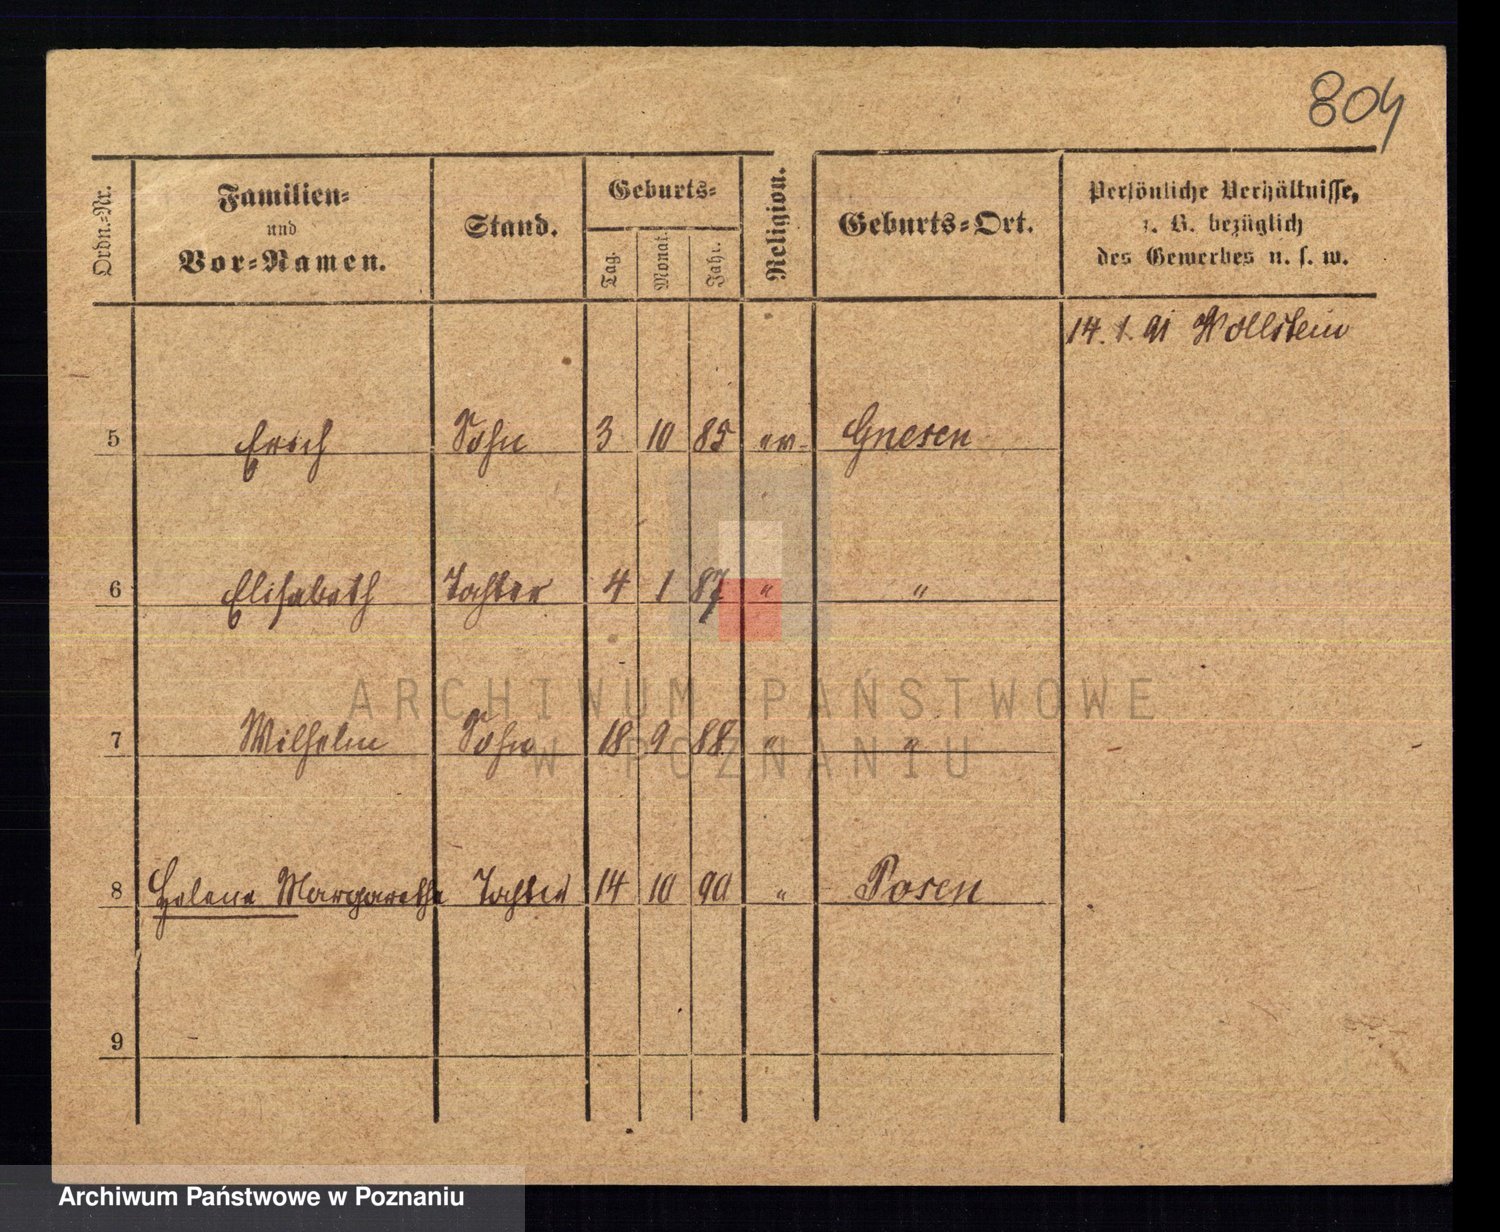 804
Ordn.-Nr.
Familien-
und
Vor-Namen.
Stand.
Geburts-
Tag.
Monat.
Jahr.
Religion.
Geburts-Ort.
Persönliche Verhältnisse,
z. B. bezüglich
des Gewerbes u. s. w.
14. 1. 91 Wollstein
5 Erich Sohn 3 10 85 ev. Gnesen
6 Elisabeth Tochter 4 1 87 " "
ARCHIWUM PAŃSTWOWE
7 Wilhelm Sohn 18 9 88 " "
W POZNANIU
8 Helene Margarethe Tochter 14 10 90 " Posen
9
Archiwum Państwowe w Poznaniu